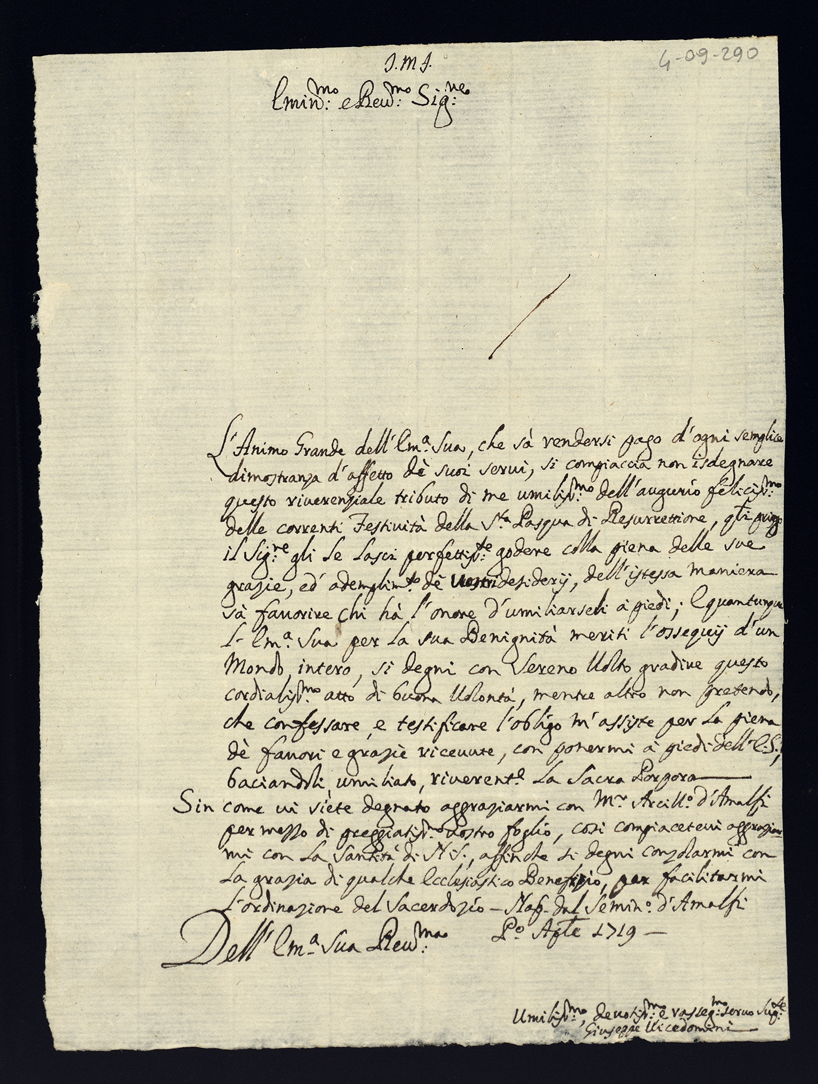 4-09-290
J.M.J.
Emin:mo e Reu:mo Sig:re
L'Animo Grande dell'Em:a Sua, che sà rendersi pago d'ogni semplice
dimostranza d'affetto dè suoi serui, si compiaccia non isdegnare
questo riuerenziale tributo di me umiliss:mo dell'augurio feliciss:mo
delle correnti Festiuità della S:ta Pasqua di Resurrettione, gl'i
il Sig:re gli Le Lasci perfettiss:te godere colla piena delle sue
grazie, ed'ademplim:to dè uostri desiderij, dell'istessa maniera
sà fauorire chi hà l'onore d'umiliarseli à piedi; E quantunque
L'Em:a Sua per la sua Benignità meriti l'ossequij d'un
Mondo, intero, si degni con Sereno Uolto gradire questo
cordialiss:mo atto di buona Uolontà, mentre altro non pretendo,
che confessare, e testificare l'obligo m'assiste per la piena
dè fauori e grazie riceuute, con ponermi à piedi dell'E.S.,
baciandoli, umiliato, riuerent:e La Sacra Porpora
Sin come ui siete degnato aggraziarmi con M:r Arciu:o d'Amalfi
per mezzo di preggiatiss:o uostro foglio, così compiaceteui aggraziar
mi con La Santità di N.S., affinche si degni consolarmi con
La grazia di qualche Ecclesiastico Benefizio, per facilitarmi
L'ordinazione del Sacerdozio – dal Semin:o d'Amalfi
Dell'Em:a Sua Reu:ma P:o Ap:le 1719 –
Umiliss:mo, deuotiss:mo e rasseg:mo seruo
Giuseppe Uicedomini